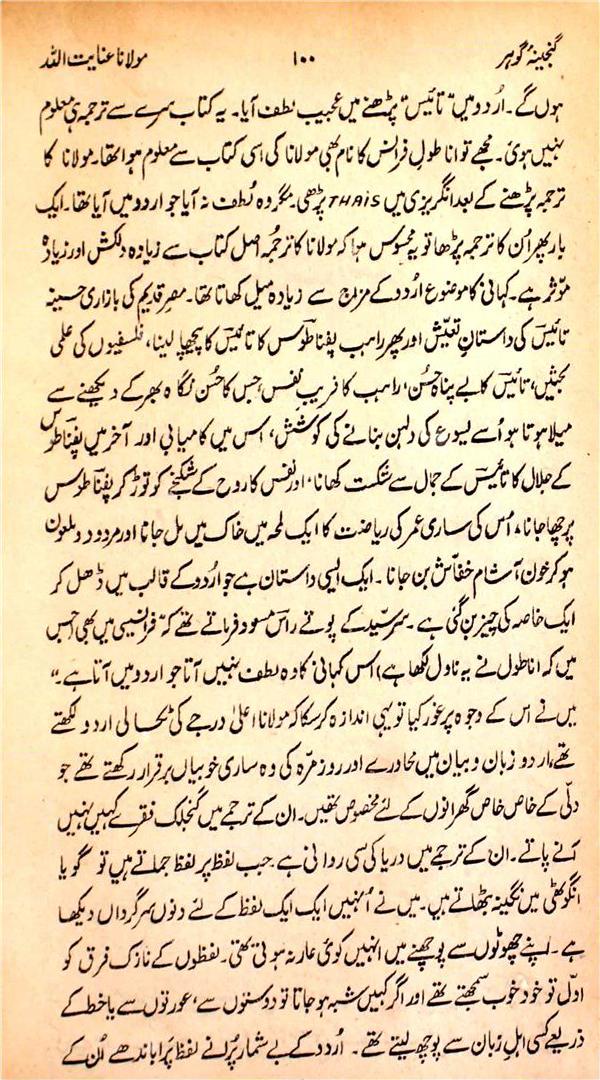 گنجینۂ گوہر ۱۰۰ مولانا عنایت اللہ
ہوں گے۔ اُردو میں "تائیس" پڑھنے میں عجیب لطف آیا۔ یہ کتاب سرے سے ترجمہ ہی معلوم
نہیں ہوئی۔ مجھے تو اناطول فرانس کا نام بھی مولانا کی اسی کتاب سے معلوم ہوا تھا۔ مولانا کا
ترجمہ پڑھنے کے بعد انگریزی میں THAIS پڑھی۔ مگر وہ لُطف نہ آیا جو اردو میں آیا تھا۔ ایک
بار پھر اُن کا ترجمہ پڑھا تو یہ محسوس ہوا کہ مولانا کا ترجمہ اصل کتاب سے زیادہ دلکش اور زیادہ
موّثر ہے۔ کہانی کا موضوع اُردو کے مزاج سے زیادہ میل کھاتا تھا۔ مصرِ قدیم کی بازاری حسینہ
تائیسؔ کی داستانِ تعیّش اور پھر راہب پفناطوسؔ کا تائیسؔ کا پیچھا لینا، فلسفیوں کی علمی
بحثیں، تائیسؔ کا بے پناہ حُسن، راہب کا فریبِ نفس، جس کا حُسن نگاہ بھر کے دیکھنے سے
میلا ہوتا ہو اُسے یسوع کی دلہن بنانے کی کوشش، اس میں کامیابی اور آخر میں پفناطوسؔ
کے جلال کا تائیسؔ کے جمال سے شکست کھانا، اور نفس کا روح کے شکنجے کو توڑ کر پفناطوسؔ
پر چھا جانا، اُس کی ساری عمر کی ریاضت کا ایک لمحہ میں خاک میں مل جانا اور مردود و ملعون
ہو کر خون آشام خفاّش بن جانا۔ ایک ایسی داستان ہے جو اُردو کے قالب میں ڈھل کر
ایک خاصہ کی چیز بن گئی ہے۔ سرسیّد کے پوتے راس مسعود فرماتے تھے کہ "فرانسیسی میں بھی (جس
میں کہ اناطول نے یہ ناول لکھا ہے) اس کہانی کا وہ لطف نہیں آتا جو اردو میں آتا ہے۔"
میں نے اس کے وجوہ پر غور کیا تو یہی اندازہ کرسکا کہ مولانا اعلیٰ درجے کی ٹکسالی اردو لکھتے
تھے، اردو زبان و بیان میں محاورے اور روزمرّہ کی وہ ساری خوبیاں برقرار رکھتے تھے جو
دلّی کے خاص خاص گھرانوں کے لئے مخصوص تھیں۔ ان کے ترجمے میں گنجلک فقرے کہیں نہیں
آنے پاتے۔ ان کے ترجمے میں دریا کی سی روانی ہے۔ جب لفظ پر لفظ جماتے ہیں تو گویا
انگوٹھی میں نگینہ بٹھاتے ہیں۔ میں نے اُنہیں ایک ایک لفظ کے لئے دنوں سرگرداں دیکھا
ہے۔ اپنے چھوٹوں سے پوچھنے میں انہیں کوئی عار نہ ہوتی تھی۔ لفظوں کے نازک فرق کو
اوّل تو خود خوب سمجھتے تھے اور اگر کہیں شبہ ہو جاتا تو دوستوں سے، عورتوں سے یا خط کے
ذریعے کسی اہلِ زبان سے پوچھ لیتے تھے۔ اُردو کے بے شمار پُرانے لفظ پَرا باندھے اُن کے